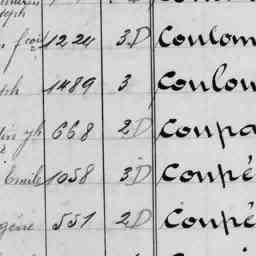 seph
1224 3D Coulom
ph 1489 3 Coulou
668 2D Coupa
Emile 1058 3D Coupé
gène 551 2D Coupé